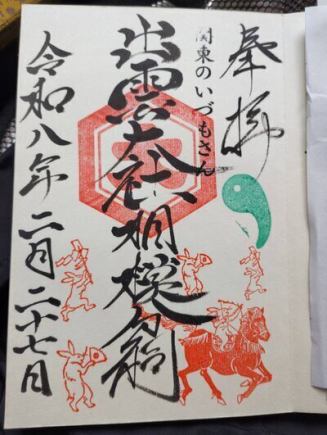 奉拝
関東のいづもさん
出雲大社相模分祠
令和八年二月二十七日